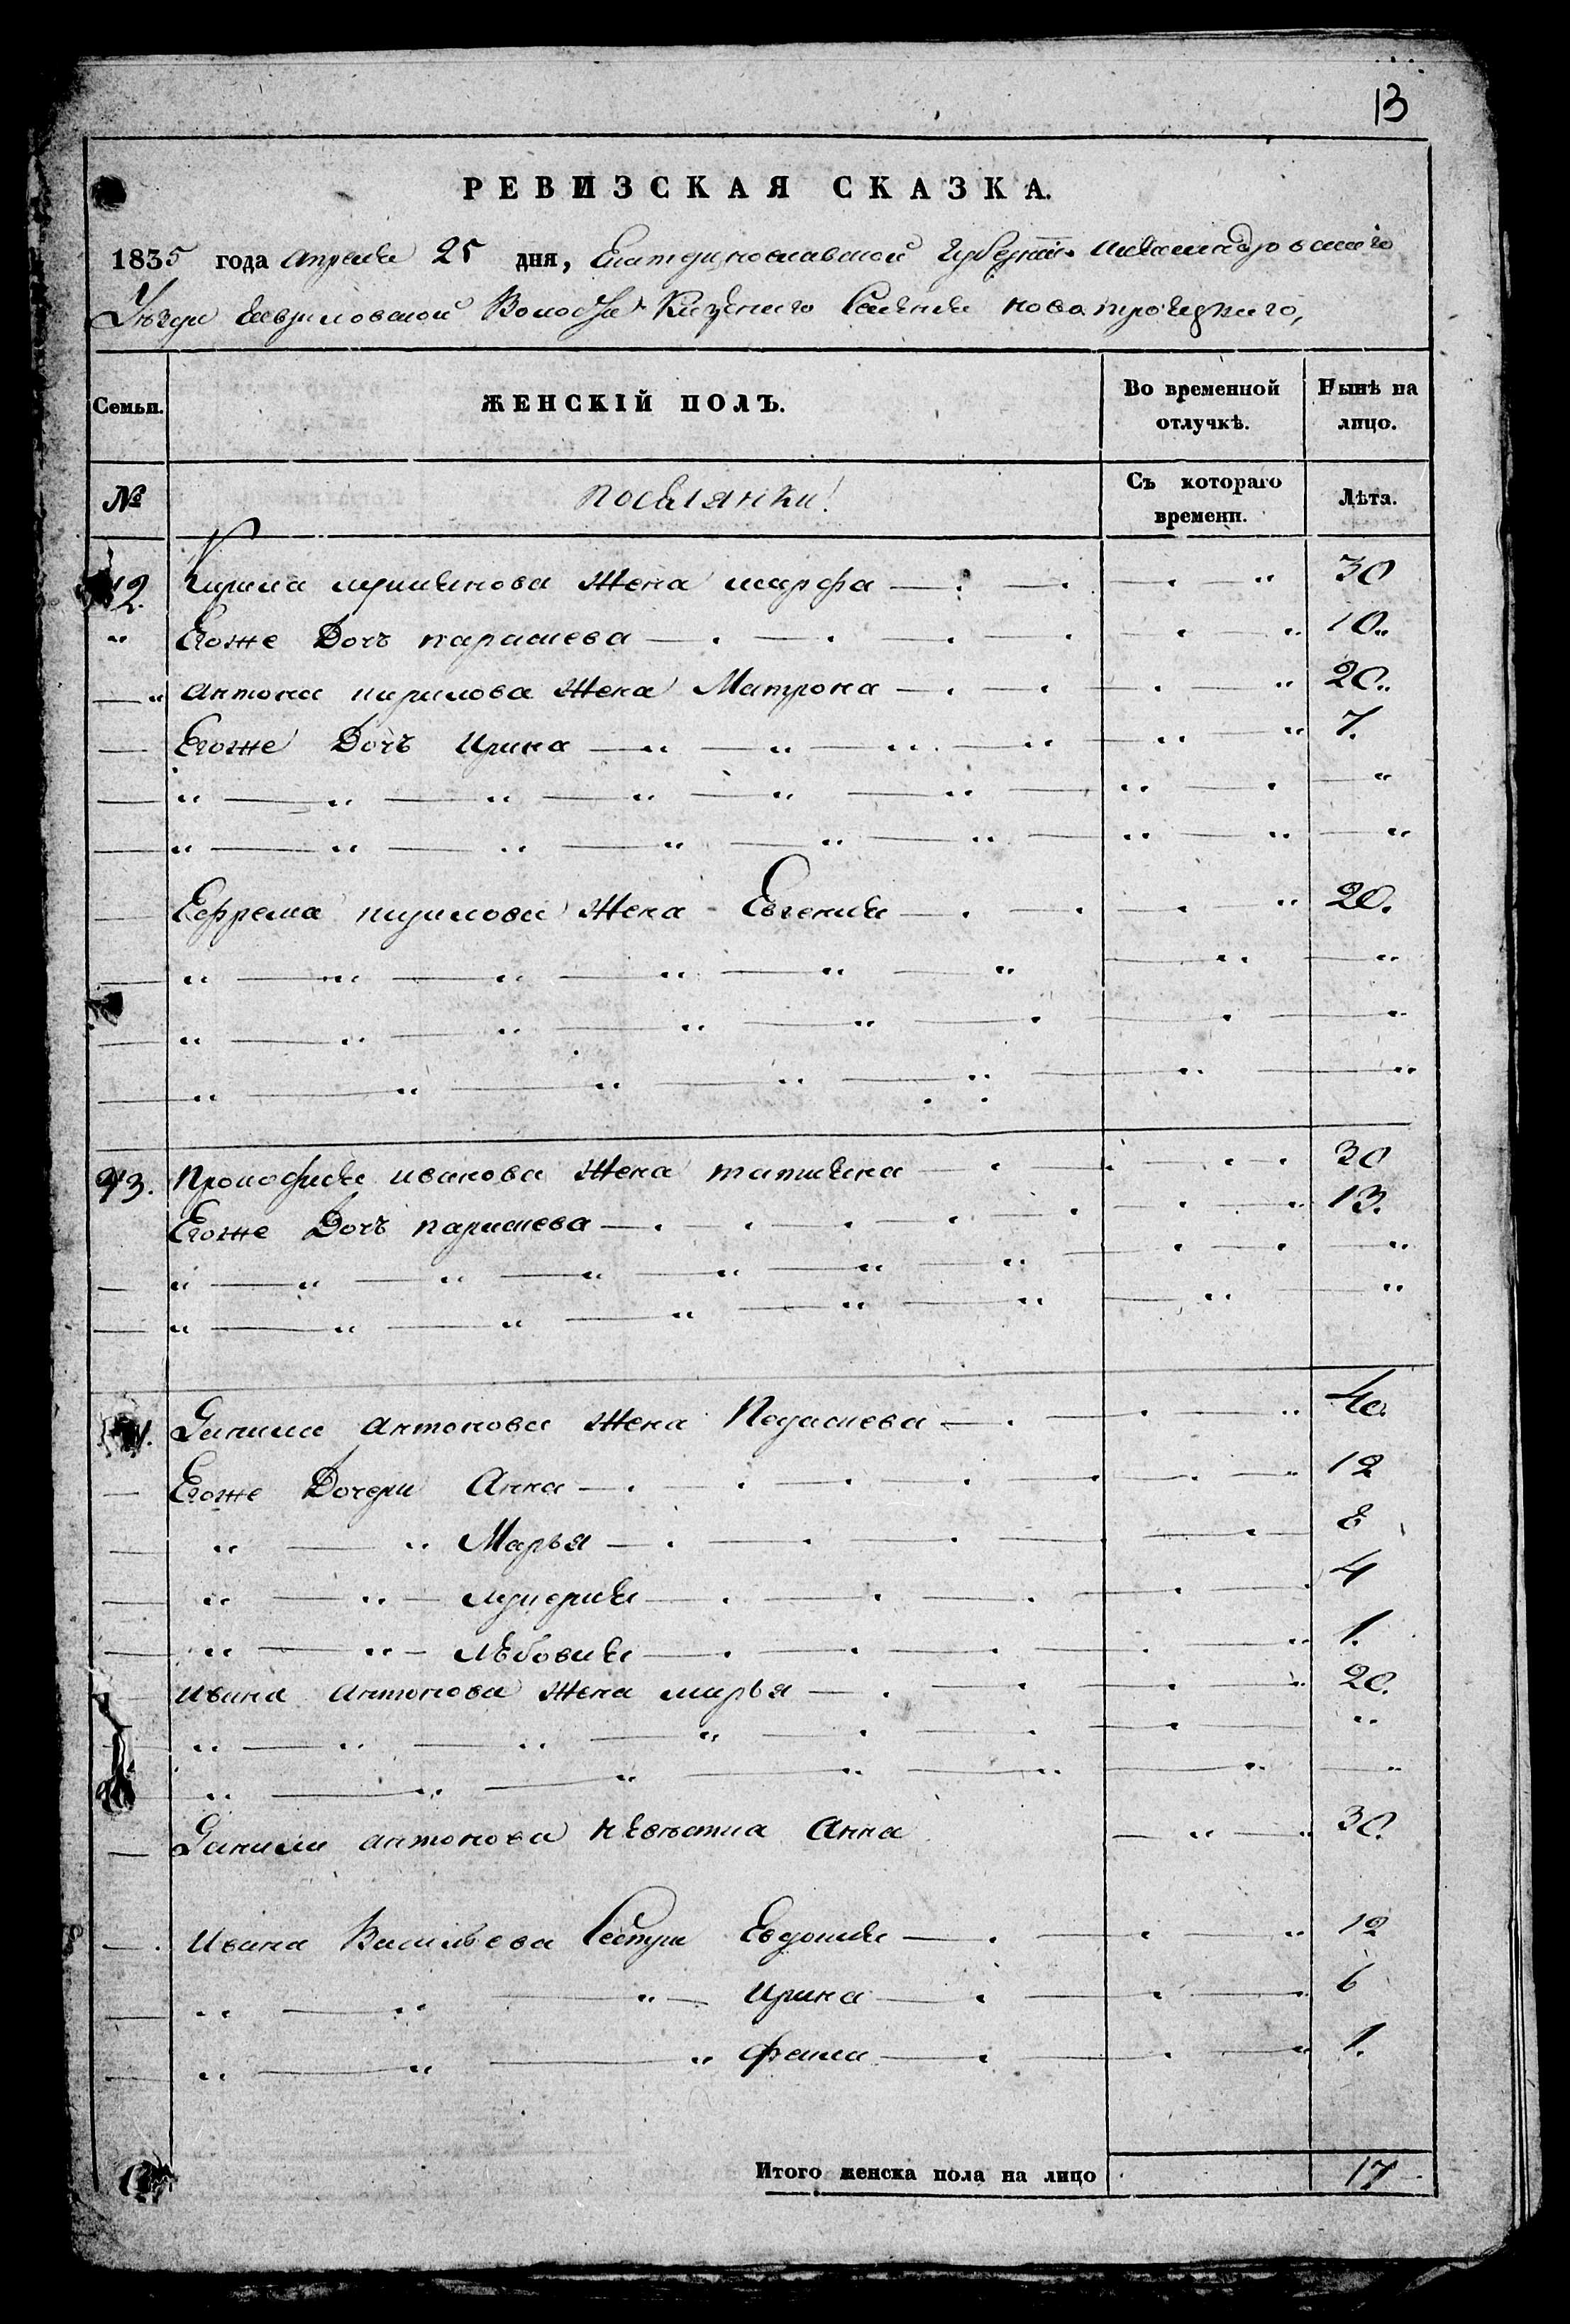 13
РЕВИЗСКАЯ СКАЗКА.
1835 года апреля 25 дня, Екатеринославской Губерніи Александровскаго
Уѣзда Гавриловской Волости Казеннаго Селенія новотроицкаго,
Семьи. ЖЕНСКІЙ ПОЛЪ. Во временной отлучкѣ. Нынѣ на лицо.
№ поселянки Съ котораго времени. Лѣта.
12. Кирила жена марфа 30
Егоже Дочь параскева 10
антона кирилова жена Матрона 20
Егоже Дочь ирина 7.
Ефрема кирилова жена Евгения 20.
43. Прокофия иванова жена татияна 30
Егоже Дочь параскева 13.
Данила антонова жена Параскева 40.
Егоже Дочери Анна 12
Марья 8
лукерия 4
1.
ивана антонова жена марья 20.
Данила антонова невѣстка анна 30.
Ивана Васильева Сестры Евдокия 12
ирина 6
1.
Итого женска пола на лицо 17